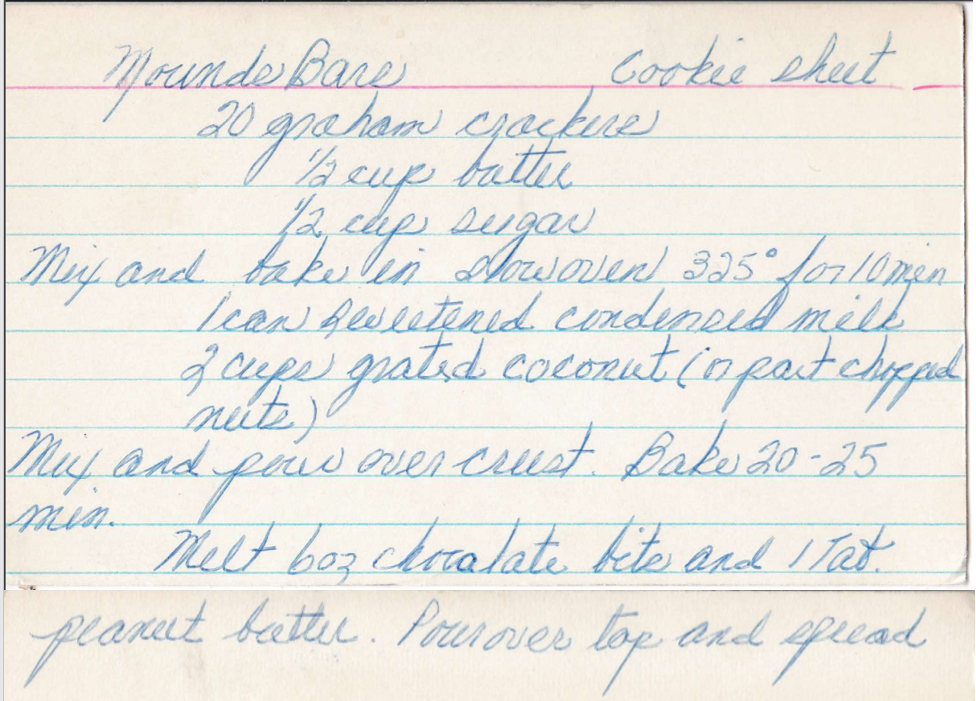 Mounds Bars Cookie sheet
20 graham crackers
1/2 cup butter
1/2 cup sugar
Mix and bake in slow oven 325° for 10 min
1 can sweetened condensed milk
2 cups grated coconut (or part chopped
nuts)
Mix and pour over crust. Bake 20-25
min.
Melt 6oz chocolate bits and 1 Tbl.
peanut butter. Pour over top and spread